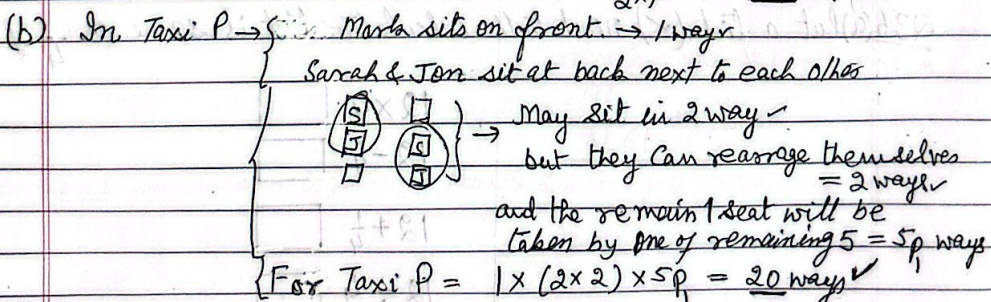 (b) In Taxi P → { Mark sits on front. → 1 way
Sarah & Jon sit at back next to each other
S J
S J
} → May sit in 2 way
but they can rearrage themselves
= 2 ways
and the remain 1 seat will be
taken by one of remaining 5 = 5P1 ways
For Taxi P = 1 x (2x2) x 5P1 = 20 ways